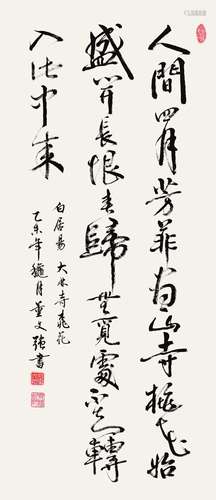 人間四月芳菲尽山寺桃花始
盛開長恨春歸無覓處不知轉
入此中来
白居易 大林寺桃花
乙未年 月董文强書